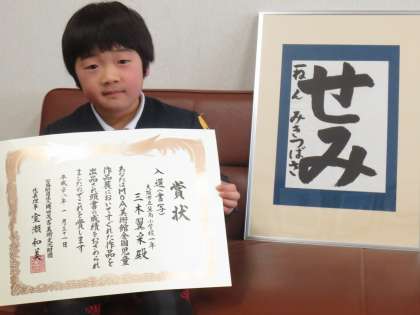 賞状
入選(書写)
三木翼采殿
あなたはMOA美術館全国児童
作品展においてすぐれた作品を
出品され頭書の成績をおさめられ
ましたのでこれを賞します
平成二八年一月三十一日
代表理事 室瀬和美
せみ
一ねん みきつばさ